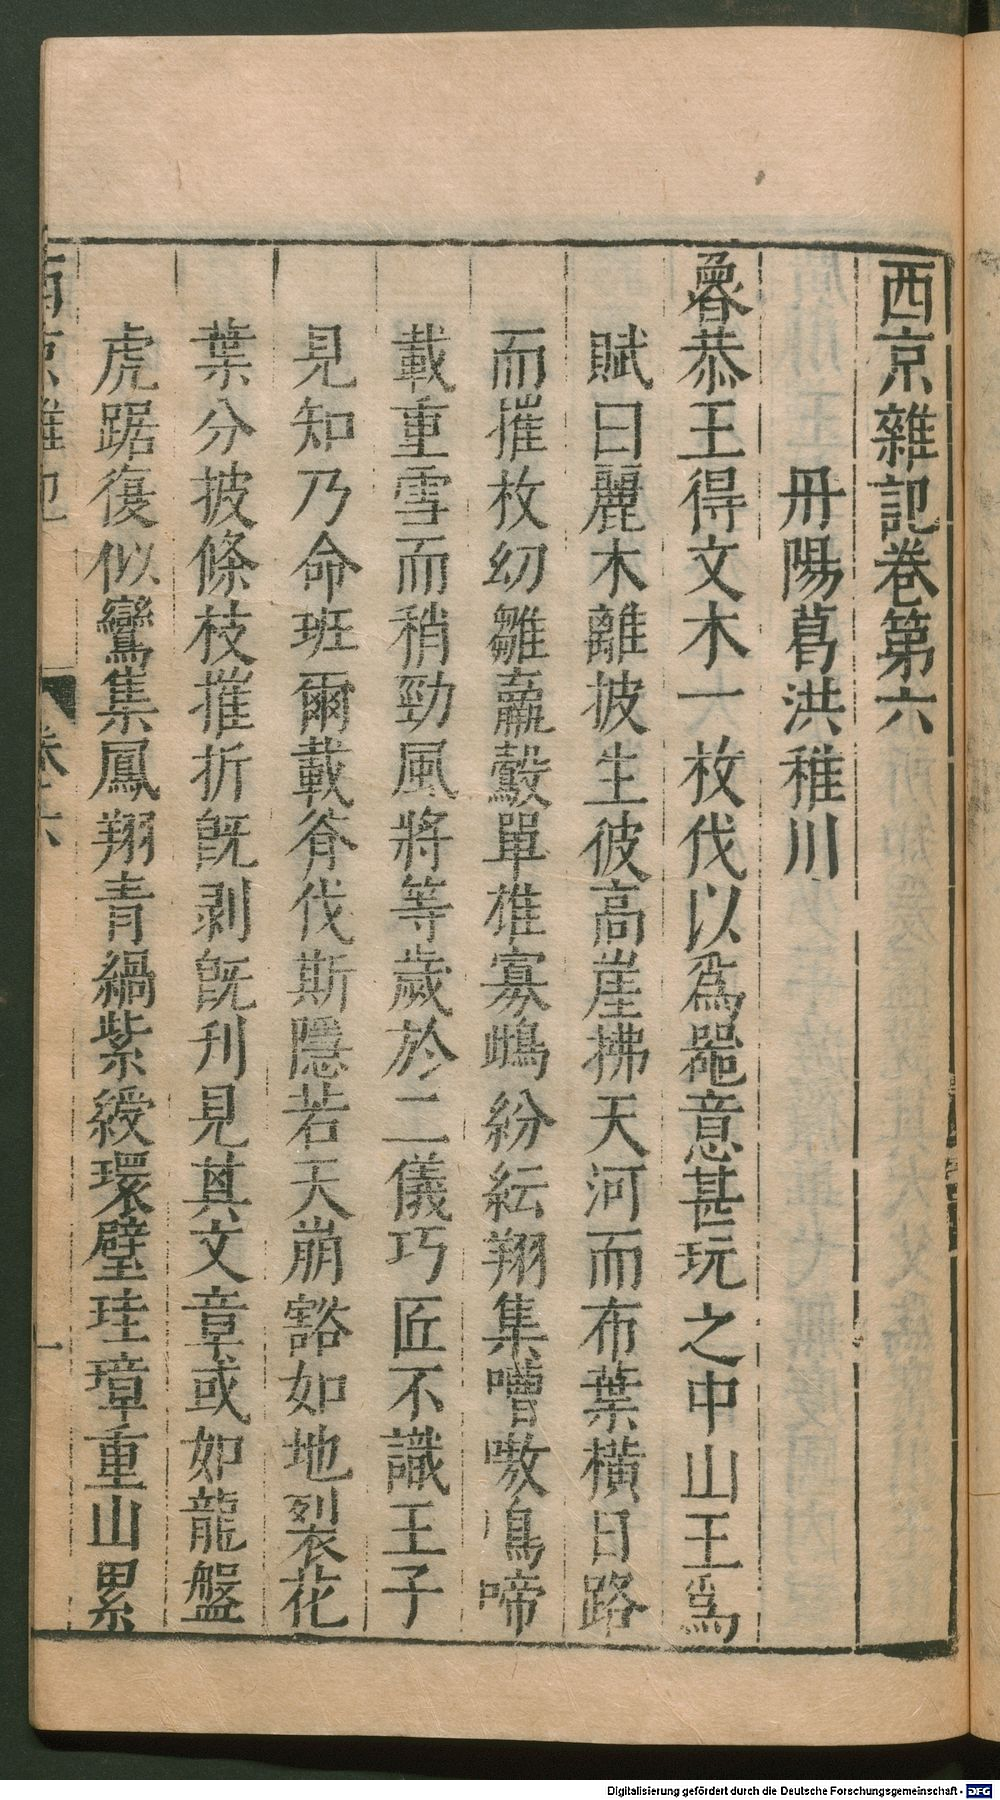 西京雜記卷第六
丹陽葛洪稚川
魯恭王得文木一枚伐以爲噐意甚玩之中山王爲
賦曰麗木離披生彼高崖拂天河而布葉橫日路
而摧枚幼雛羸鷇單雄寡鴟紛紜翔集嘈嗷鳴啼
載重雪而稍勁風將等歲於二儀巧匠不識王子
見知乃命班爾載斧伐斯隱若天崩豁如地裂花
葉分披條枝摧折旣剥旣刋見其文章或如龍盤
虎踞復似鸞集鳳翔青緺紫綬環璧珪璋重山累
西京雜記
卷六
一
Digitalisierung gefördert durch die Deutsche Forschungsgemeinschaft - DFG